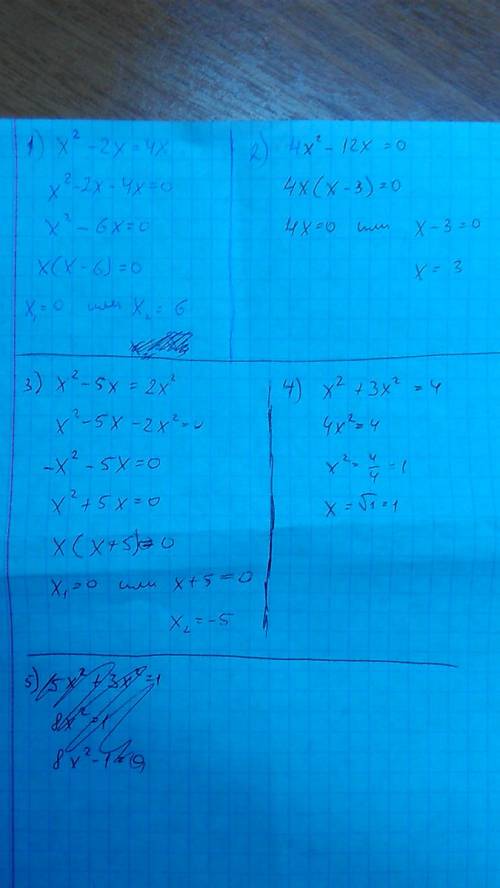 1) x² - 2x = 4x
x² - 2x - 4x = 0
x² - 6x = 0
x(x - 6) = 0
x₁ = 0 или x₂ = 6
2) 4x² - 12x = 0
4x(x - 3) = 0
4x = 0 или x - 3 = 0
x = 3
3) x² - 5x = 2x²
x² - 5x - 2x² = 0
-x² - 5x = 0
x² + 5x = 0
x(x + 5) = 0
x₁ = 0 или x + 5 = 0
x₂ = -5
4) x² + 3x² = 4
4x² = 4
x² = 4/4 = 1
x = √1 = 1
5) 5x² + 3x² = 1
8x² = 1
8x² - 1 = 0